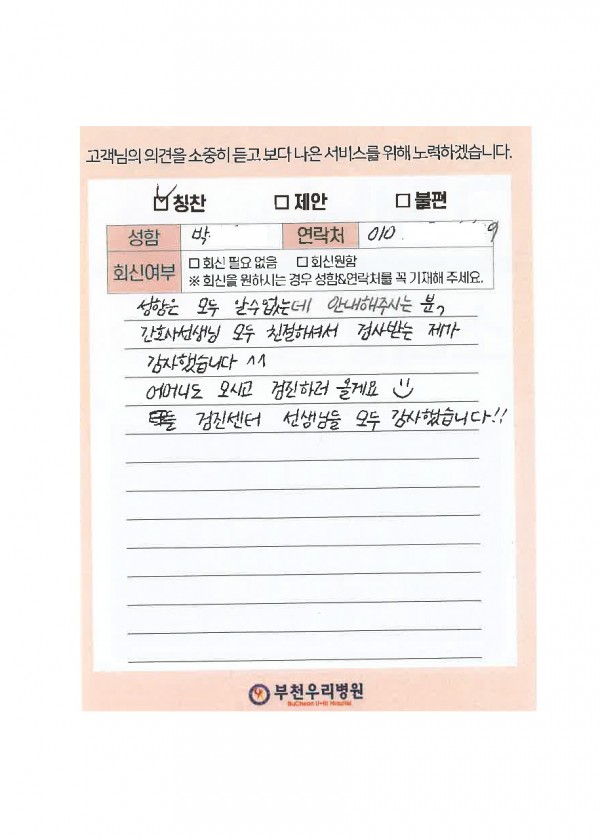 고객님의 의견을 소중히 듣고 보다 나은 서비스를 위해 노력하겠습니다.
☑ 칭찬 □ 제안 □ 불편
성함 박 연락처 010. 9
회신여부 □ 회신 필요 없음 □ 회신원함
※ 회신을 원하시는 경우 성함&연락처를 꼭 기재해 주세요.
성함은 모두 알수없는데 안내해주시는 분,
간호사선생님 모두 친절하셔서 검사받는 제가
감사했습니다 ^^
어머니도 모시고 검진하러 올게요 ☺
검진센터 선생님들 모두 감사했습니다!!
부천우리병원
BuCheon U+RI Hospital